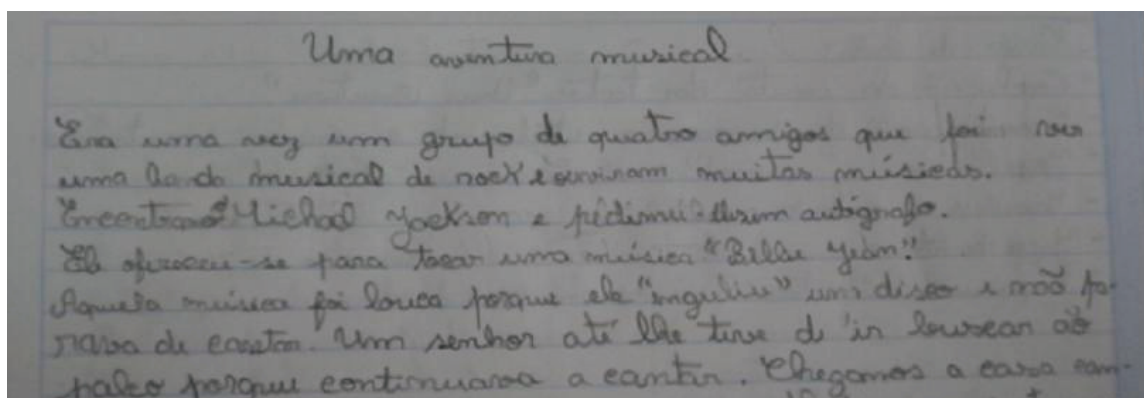 Uma aventura musical
Era uma vez um grupo de quatro amigos que foi ver
uma banda musical de rock e ouviram muitas músicas.
Michal Jackson e um autógrafo.
Ele ofereceu-se para tocar uma música "Bellie Jean".
Aquela música foi louca porque ele "inguliu" um disco e não pa-
rava de cantar. Um senhor até lhe teve d'ir buscar ao
palco porque continuava a cantar. Chegamos a casa can-